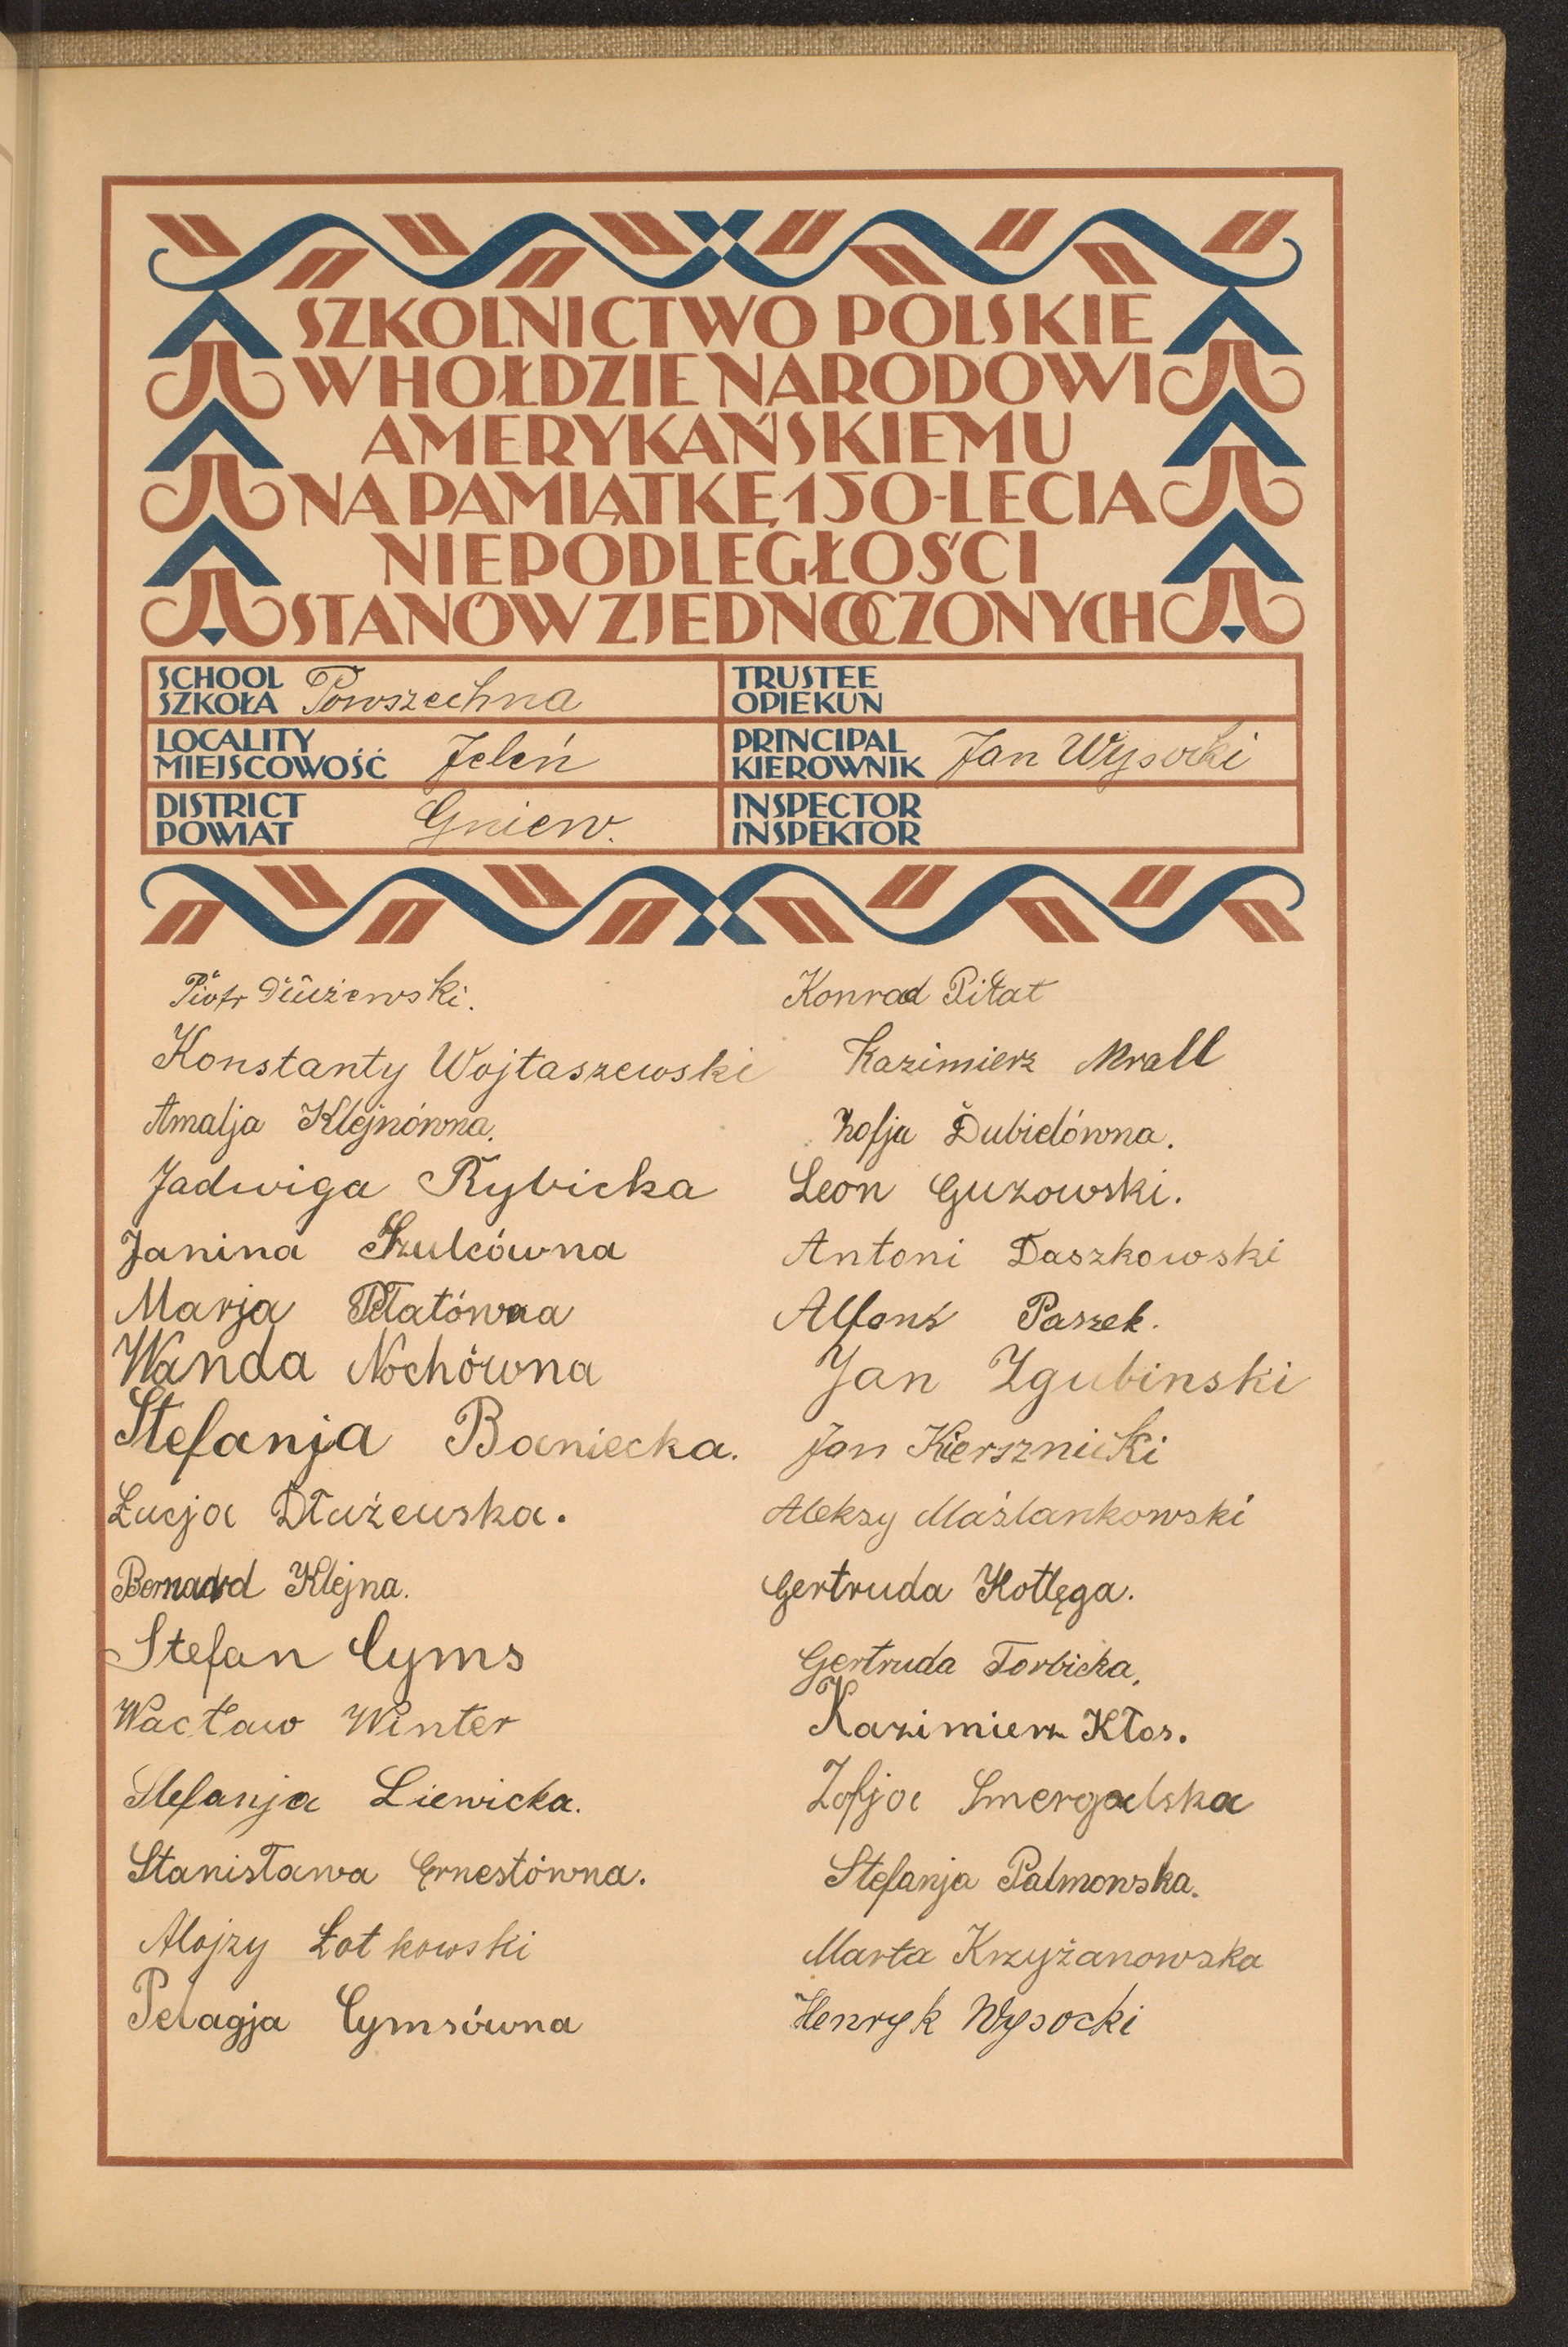 SZKOLNICTWO POLSKIE
W HOŁDZIE NARODOWI
AMERYKAŃSKIEMU
NA PAMIĄTKĘ 150-LECIA
NIEPODLEGŁOŚCI
STANÓW ZJEDNOCZONYCH
SCHOOL
SZKOŁA Powszechna
TRUSTEE
OPIEKUN
LOCALITY
MIEJSCOWOŚĆ Jeleń
PRINCIPAL
KIEROWNIK Jan Wysocki
DISTRICT
POWIAT Gniew.
INSPECTOR
INSPEKTOR
Piotr Dłużewski.
Konstanty Wojtaszewski
Amalja Klejnówna.
Jadwiga Rybicka
Janina Szulcówna
Marja
Wanda Nochówna
Stefanja Baniecka.
Łucja Dłużewska.
Bernard Klejna.
Stefan Cyms
Wacław Winter
Stefanja Liewicka.
Stanisława Ernestówna.
Alojzy Łotkowski
Pelagja Cymsówna
Konrad Piłat
Kazimierz Mrall
Zofja Dubielówna.
Leon Guzowski.
Antoni Daszkowski
Alfons Paszek.
Jan Zgubinski
Jan Kiersznicki
Aleksy Maślankowski
Gertruda Kotlęga.
Gertruda Torbicka.
Kazimierz Kłos.
Zofja Smergalska
Stefanja Palmowska.
Marta Krzyżanowska
Henryk Wysocki